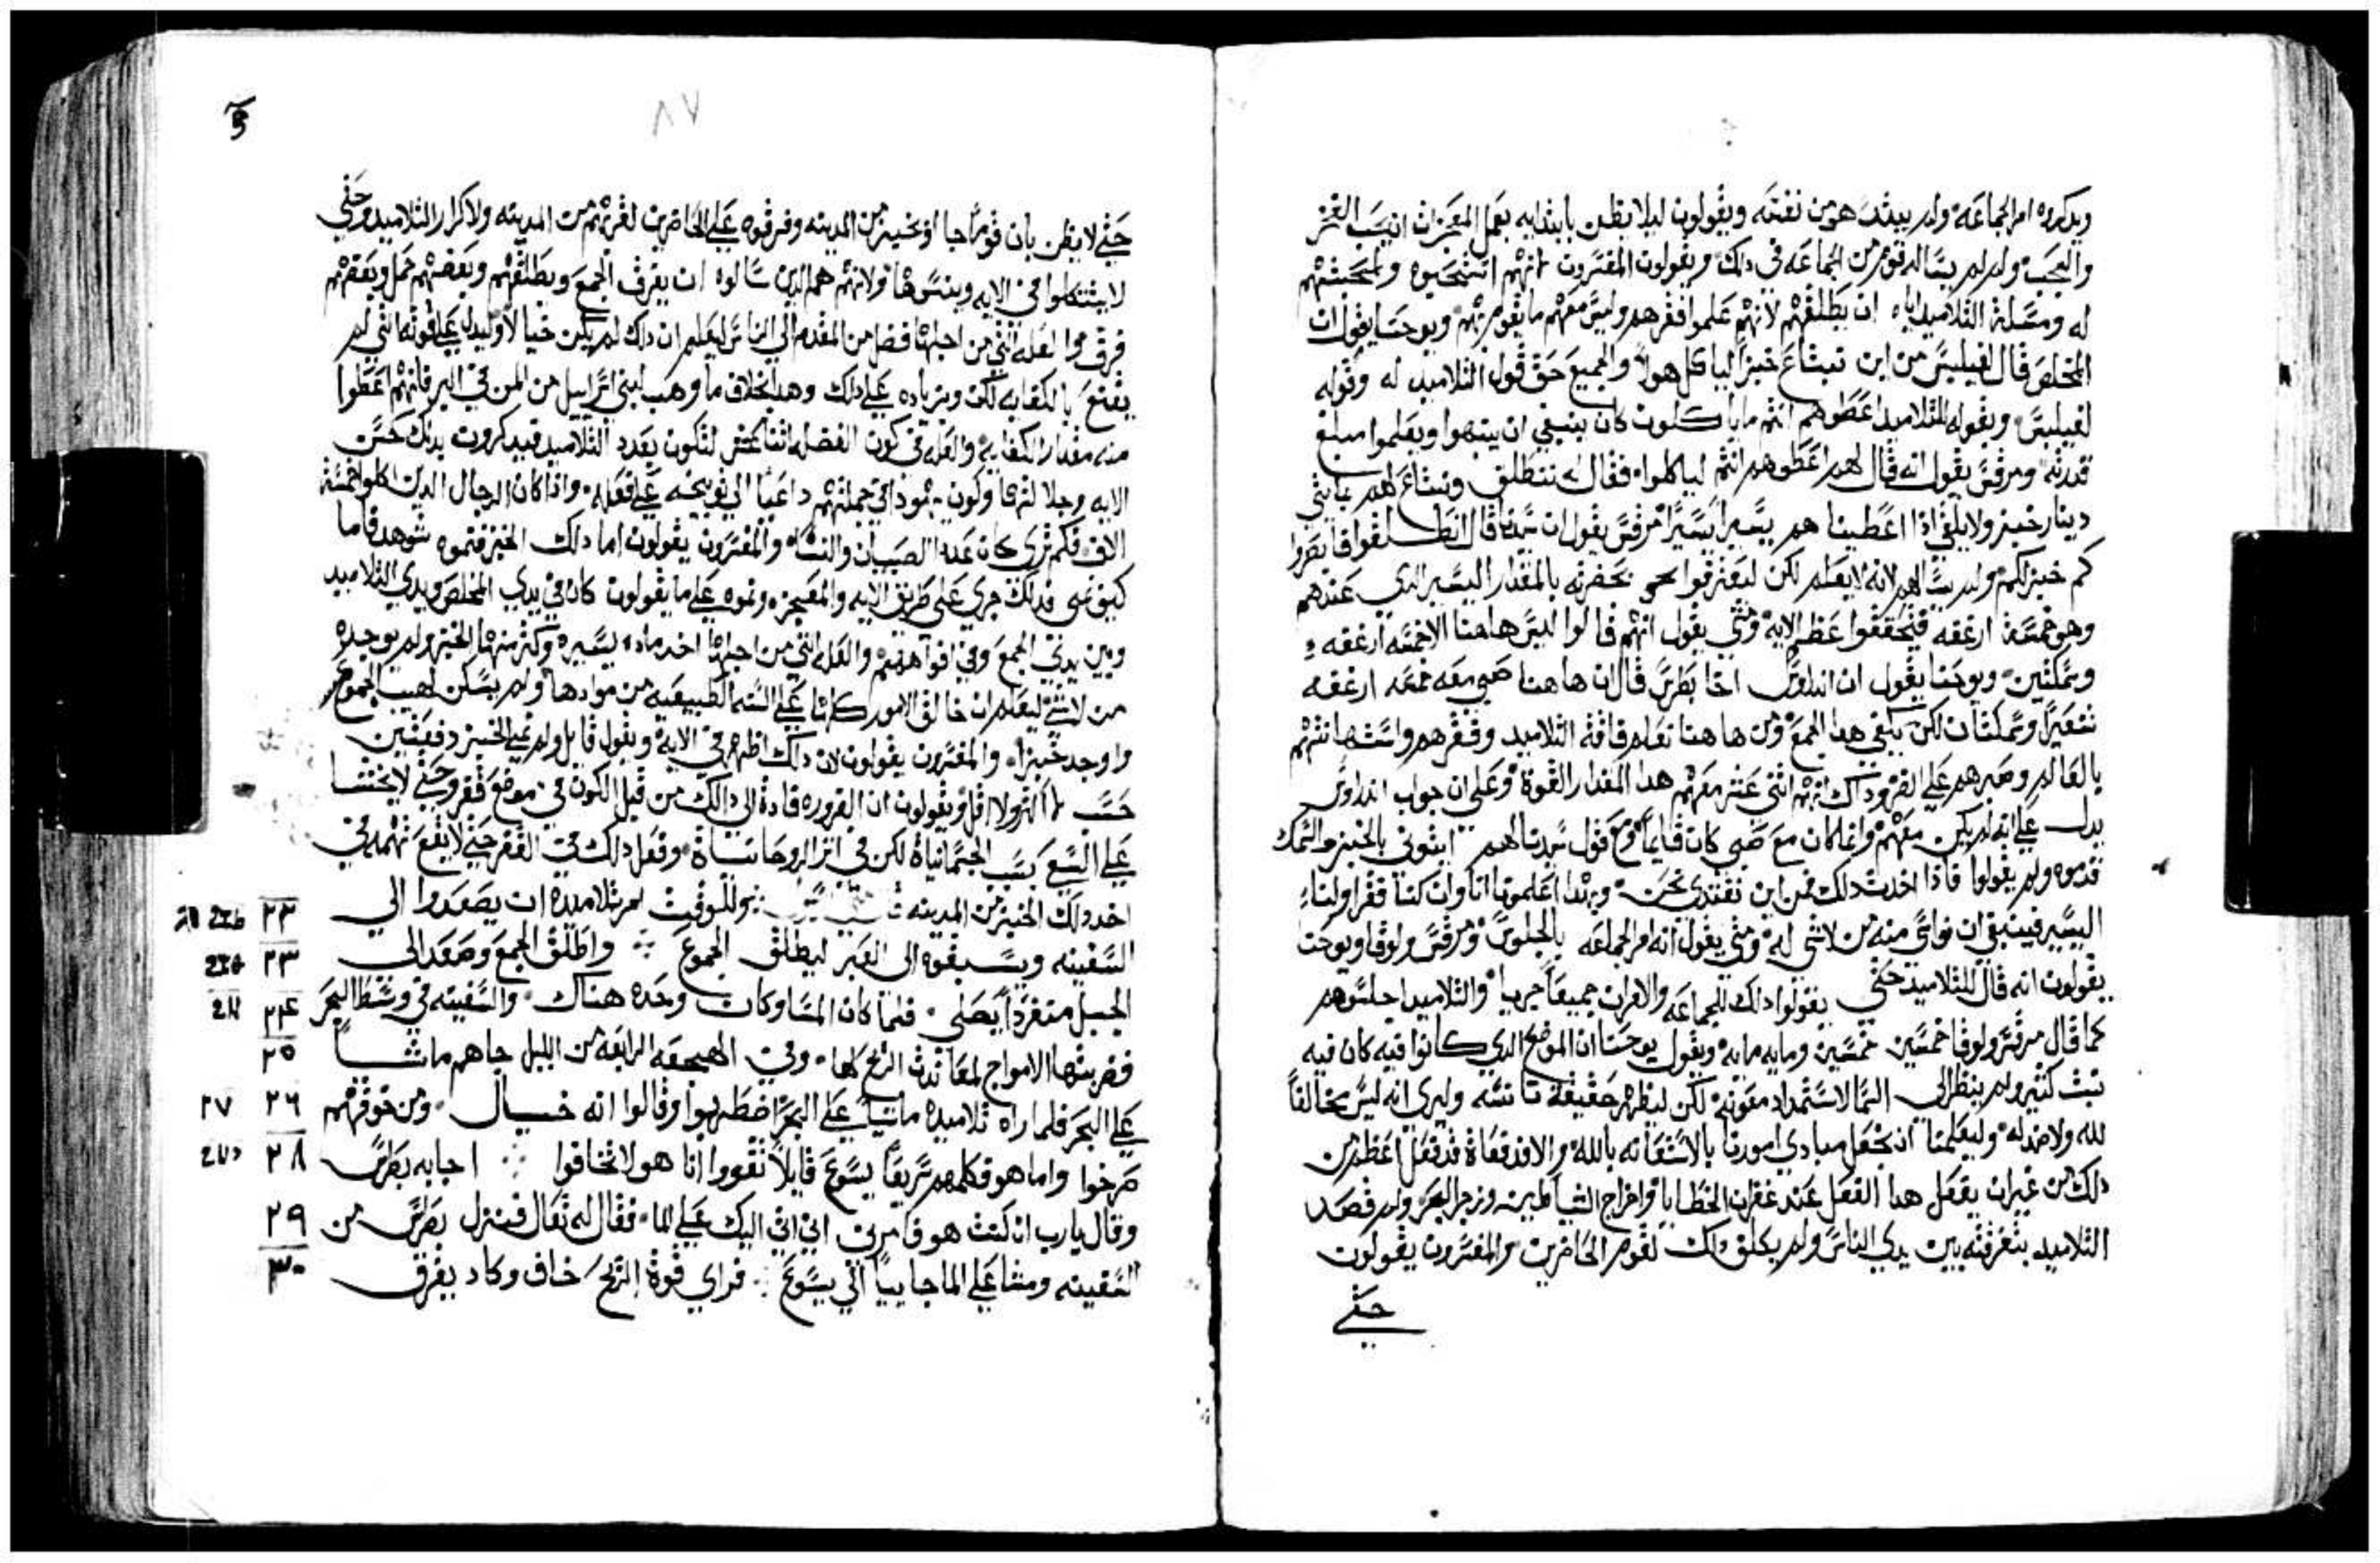 ويدكروه امر الجماعه ولم يبتد هو من نفسه ويقولون ليلا يظن بابتدايه بعمل المعجزات انه يحب الفخر
والعجب ولم لم يساله قوم من الجماعه في دلك ويقولون المفسرون انهم استحيوه ولمحبتهم
له ومسلة التلاميد اياه ان يطلقهم لانهم علموا فقرهم وليس معهم ما يقوم بهم ويوحنا يقول ان
المخلص قال لفيلبس من اين نبتاع خبزا لياكل هولا والجميع حق قول التلاميد له وقوله
لفيلبس ويقوله للتلاميد اعطوهم انتم ما ياكلون كان ينبغي ان ينتبهوا ويعلموا مبلغ
قدرته ومرقس يقول انه قال لهم اعطوهم انتم لياكلوا فقالوا له ننطلق ونبتاع لهم بمايتي
دينار خبز ولا يكفي ادا اعطينا هم يسيرا يسيرا مرقس يقول ان سيدنا قال انطلقوا فابصروا
كم خبز لكم ولم يسالهم لانه لا يعلم لكن ليعترفوا بحضرته بالمقدار اليسير الدي عندهم
وهو خمسة ارغفه فيتحققوا عظم الايه ومتي يقول انهم قالوا ليس هاهنا الا خمسه ارغفه
وسمكتين ويوحنا يقول ان اندراوس اخا بطرس قال ان هاهنا صبي معه خمسه ارغفه
شعير وسمكتان لكن يكفي هدا الجمع ومن هاهنا نعلم فاقة التلاميد وفقرهم واستهانتهم
بالعالم وصبرهم علي الضر وداك انهم اثني عشر معهم هدا المقدار القوة وعلي ان جواب اندراوس
يدل علي انه لم يكن معهم وانما كان مع صبي كان قايما ومع قول سيدنا لهم ايتوني بالخبز والسمك
قدموه ولم يقولوا فادا اخدت دلك فمن اين نغتدي نحن وبهدا اعلمونا انا وان كنا فقرا ولنا
اليسير فينبغي ان نواسي منه من لا شي له ومتي يقول انه امر الجماعه بالجلوس ومرقس ولوقا ويوحنا
يقولون انه قال للتلاميد حتي يقولوا دلك للجماعه والامران جميعا جريا والتلاميد اجلسوهم
كما قال مرقس ولوقا خمسين خمسين ومايه مايه ويقول يوحنا ان الموضع الدي كانوا فيه كان فيه
نبت كثير ولم ينظر الي السما لاستمداد معونة لكن ليظهر حقيقة تانسه وليري انه ليس مخالفا
لله ولا ضد له وليعلمنا ان نجعل مبادي امورنا بالاستعانه بالله والا فد فعاة قد فعل اعظم من
دلك من غير ان يفعل هدا الفعل عند غفران الخطايا واخراج الشياطين وزجر البحر ولم قصد
التلاميد بتفرقته بين يدي الناس ولم يطلق دلك لقوم الحاضرين والمفسرون يقولون
حتي
٨٧
حتي لا يظن بان قوما جا اخد خبز من المدينه وفرقوه علي الحاضرين لقربهم من المدينه ولاكرام التلاميد وحتي
لا يتشككوا في الايه وينسوها ولانهم هم الدين سالوه ان يفرق الجمع ويطلقهم وبعضهم حمل وبعضهم
فرقوا العله التي من اجلها فضل من المقدم الي الناس ليعلم ان دلك لم يكن خيالا وليدل علي قوته التي لم
يقنع بالكفايه لكن وبزياده علي دلك وهدا بخلاف ما وهب لبني اسراييل من المن في البر فانهم اعطوا
منه مقدار الكفايه والعله في كون الفضله اثنا عشر لتكون بعدد التلاميد فيدكرون بدلك حسن
الايه وجلالتها وكون يهودا في جملتهم داعيا الي توبيخه علي فعله وادا كان الرجال الدين اكلوا خمسة
الاف فكم تري كان عدد الصبيان والنساء والمفسرون يقولون اما دلك الخبز فنموه شوهد فاما
كيف نمي فدلك جري علي طريق الايه والمعجزه ونموه علي ما يقولون كان في يدي المخلص ويدي التلاميد
وبين يدي الجمع وفي افواههم والعله التي من اجلها اخد ماده يسيره وكثر منها الخبز ولم يوجده
من لا شي ليعلم ان خالق الامور كلها علي السنه الطبيعيه من موادها ولم يسكن لهيب الجموع
واوجد خبزا والمفسرون يقولون لان دلك اظهر في الايه ويقول قايل ولم نمي الخبز دفعتين
حسب لا اكثر ولا اقل ويقولون ان الضروره قادة الي دلك من قبل الكون في موضع قفر وحتي لا يحثنا
علي السعي بسبب الجسمانياة لكن في اثر الروحانياة وفعل دلك في القفر حتي لا يقع تهمه في
اخد دلك الخبز من المدينه وللوقت امر تلاميده ان يصعدوا الي ٢٢
السفينه ويسبقوه الي العبر ليطلق الجموع واطلق الجمع وصعد الي ٢٣
الجبل منفردا يصلي فلما كان المسا وكان وحده هناك والسفينه في وسط البحر ٢٤
فضربتها الامواج لمعاندت الريح لها وفي الهجعه الرابعه من الليل جاهم ماشيا ٢٥
علي البحر فلما راه تلاميده ماشيا علي البحر اضطربوا وقالوا انه خيال ومن خوفهم ٢٦ ٢٧
صرخوا واما هو فكلمهم سريعا يسوع قايلا تقووا انا هو لا تخافوا اجابه بطرس ٢٨
وقال يارب ان كنت هو فامرني ان اتي اليك علي الما فقال له تعال فنزل بطرس من ٢٩
السفينه ومشا علي الما جاييا الي يسوع فراي قوة الريح خاف وكاد يغرق ٣٠